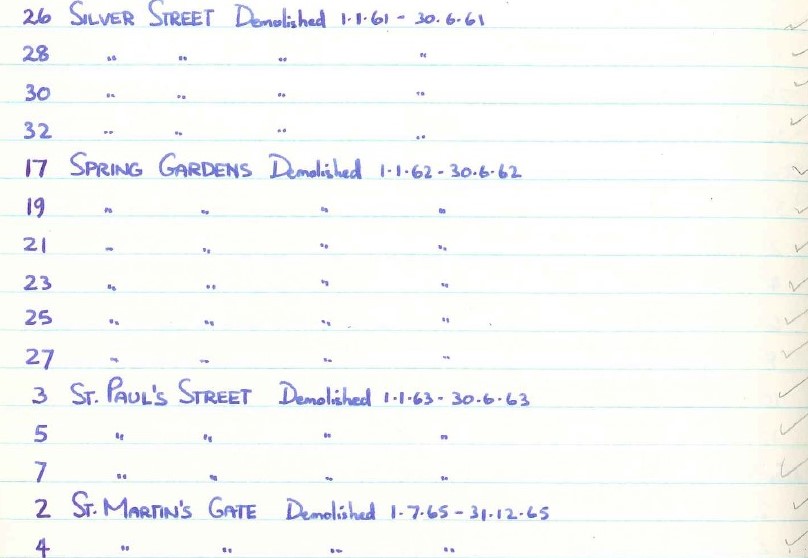 26 SILVER STREET Demolished 1.1.61 - 30.6.61
28 " " " "
30 " " " "
32 " " " "
17 SPRING GARDENS Demolished 1.1.62 - 30.6.62
19 " " " "
21 " " " "
23 " " " "
25 " " " "
27 " " " "
3 ST. PAUL'S STREET Demolished 1.1.63 - 30.6.63
5 " " " "
7 " " " "
2 ST. MARTIN'S GATE Demolished 1.7.65 - 31.12.65
4 " " " "